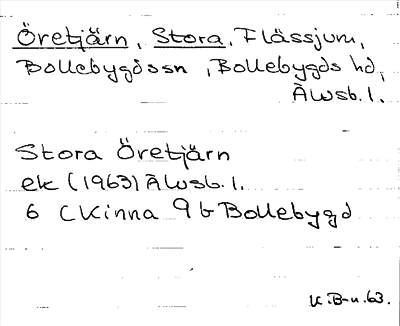 Öretjärn, Stora, Flässjum,
Bollebygdssn, Bollebygds hd,
Älvsb. l.
Stora Öretjärn
ek (1963) Älvsb. l.
6 C Kinna 9 b Bollebygd
K.B-n.63.